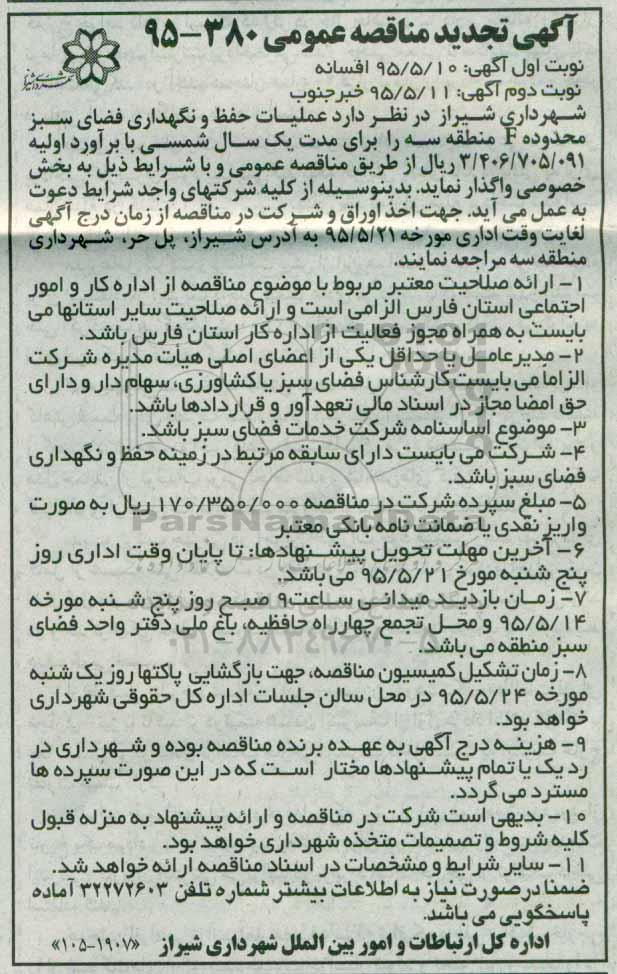 آگهی تجدید مناقصه عمومی ۳۸۰-۹۵
نوبت اول آگهی: ۹۵/۵/۱۰ افسانه
نوبت دوم آگهی: ۹۵/۵/۱۱ خبرجنوب
شهرداری شیراز در نظر دارد عملیات حفظ و نگهداری فضای سبز
محدوده F منطقه سه را برای مدت یک سال شمسی با برآورد اولیه
۳/۴۰۶/۷۰۵/۰۹۱ ریال از طریق مناقصه عمومی و با شرایط ذیل به بخش
خصوصی واگذار نماید. بدینوسیله از کلیه شرکتهای واجد شرایط دعوت
به عمل می آید. جهت اخذ اوراق و شرکت در مناقصه از زمان درج آگهی
لغایت وقت اداری مورخه ۹۵/۵/۲۱ به آدرس شیراز، پل حر، شهرداری
منطقه سه مراجعه نمایند.
۱- ارائه صلاحیت معتبر مربوط با موضوع مناقصه از اداره کار و امور
اجتماعی استان فارس الزامی است و ارائه صلاحیت سایر استانها می
بایست به همراه مجوز فعالیت از اداره کار استان فارس باشد.
۲- مدیرعامل یا حداقل یکی از اعضای اصلی هیأت مدیره شرکت
الزاما می بایست کارشناس فضای سبز یا کشاورزی، سهام دار و دارای
حق امضا مجاز در اسناد مالی تعهدآور و قراردادها باشد.
۳- موضوع اساسنامه شرکت خدمات فضای سبز باشد.
۴- شرکت می بایست دارای سابقه مرتبط در زمینه حفظ و نگهداری
فضای سبز باشد.
۵- مبلغ سپرده شرکت در مناقصه ۱۷۰/۳۵۰/۰۰۰ ریال به صورت
واریز نقدی یا ضمانت نامه بانکی معتبر
۶- آخرین مهلت تحویل پیشنهادها: تا پایان وقت اداری روز
پنج شنبه مورخ ۹۵/۵/۲۱ می باشد.
۷- زمان بازدید میدانی ساعت ۹ صبح روز پنج شنبه مورخه
۹۵/۵/۱۴ و محل تجمع چهارراه حافظیه، باغ ملی دفتر واحد فضای
سبز منطقه می باشد.
۸- زمان تشکیل کمیسیون مناقصه، جهت بازگشایی پاکتها روز یک شنبه
مورخه ۹۵/۵/۲۴ در محل سالن جلسات اداره کل حقوقی شهرداری
خواهد بود.
۹- هزینه درج آگهی به عهده برنده مناقصه بوده و شهرداری در
رد یک یا تمام پیشنهادها مختار است که در این صورت سپرده ها
مسترد می گردد.
۱۰- بدیهی است شرکت در مناقصه و ارائه پیشنهاد به منزله قبول
کلیه شروط و تصمیمات متخذه شهرداری خواهد بود.
۱۱- سایر شرایط و مشخصات در اسناد مناقصه ارائه خواهد شد.
ضمنا در صورت نیاز به اطلاعات بیشتر شماره تلفن ۳۲۲۷۲۶۰۳ آماده
پاسخگویی می باشد.
اداره کل ارتباطات و امور بین الملل شهرداری شیراز «۱۹۰۷-۱۰۵»